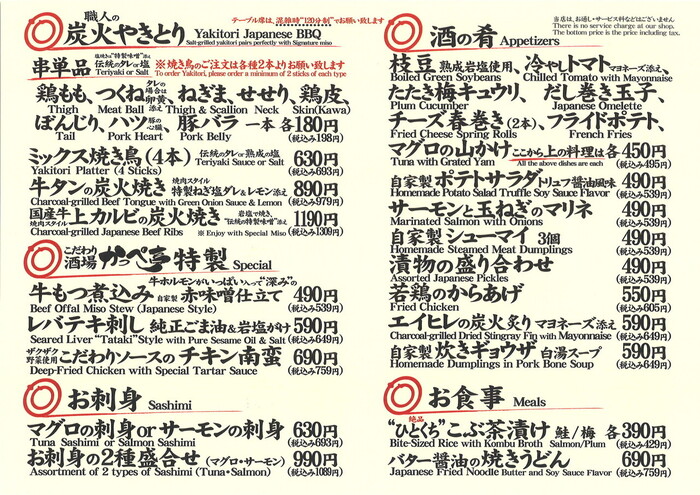 職人の
炭火やきとり Yakitori Japanese BBQ
Salt-grilled yakitori pairs perfectly with Signature miso
テーブル席は、混雑時"120分制"でお願い致します
串単品 塩焼きの"特製味噌"添え
伝統のタレor塩
Teriyaki or Salt
※焼き鳥のご注文は各種2本よりお願い致します
To order Yakitori, please order a minimum of 2 sticks of each type
鶏もも、つくね タレの場合は卵黄添え、ねぎま、せせり、鶏皮、
Thigh Meat Ball Thigh & Scallion Neck Skin(Kawa)
ぼんじり、ハツ 豚の心臓、豚バラ 一本 各180円
Tail Pork Heart Pork Belly (税込み198円)
ミックス焼き鳥(4本) 伝統のタレor熟成の塩 630円
Yakitori Platter (4 Sticks) Teriyaki Sauce or Salt (税込み693円)
牛タンの炭火焼き 焼肉スタイル 特製ねぎ塩ダレ&レモン添え 890円
Charcoal-grilled Beef Tongue with Green Onion Sauce & Lemon (税込み979円)
国産牛 焼肉スタイル 上カルビの炭火焼き 岩塩で焼き、"伝統の特製味噌"添え 1190円
Charcoal-grilled Japanese Beef Ribs ※ Enjoy with Special Miso (税込み1309円)
こだわり酒場 かっぺ亭 特製 Special
牛ホルモンがいっぱい入って"深みの"
牛もつ煮込み 自家製 赤味噌仕立て 490円
Beef Offal Miso Stew (Japanese Style) (税込み539円)
レバテキ刺し 純正ごま油&岩塩がけ 590円
Seared Liver "Tataki"Style with Pure Sesame Oil & Salt (税込み649円)
ザクザク野菜使用 こだわりソースのチキン南蛮 690円
Deep-Fried Chicken with Special Tartar Sauce (税込み759円)
お刺身 Sashimi
マグロの刺身orサーモンの刺身 630円
Tuna Sashimi or Salmon Sashimi (税込み693円)
お刺身の2種盛合せ (マグロ・サーモン) 990円
Assortment of 2 types of Sashimi (Tuna・Salmon) (税込み1089円)
酒の肴 Appetizers
当店は、お通し・サービス料などはございません
There is no service charge at our shop.
The bottom price is the price including tax.
枝豆 熟成岩塩使用、冷やしトマト マヨネーズ添え、
Boiled Green Soybeans Chilled Tomato with Mayonnaise
たたき梅キュウリ、だし巻き玉子、
Plum Cucumber Japanese Omelette
チーズ春巻き(2本)、フライドポテト、
Fried Cheese Spring Rolls French Fries
マグロの山かけ ここから上の料理は各450円
Tuna with Grated Yam All the above dishes are each (税込み495円)
自家製 ポテトサラダ トリュフ醤油風味 490円
Homemade Potato Salad Truffle Soy Sauce Flavor (税込み539円)
サーモンと玉ねぎのマリネ 490円
Marinated Salmon with Onions (税込み539円)
自家製 シューマイ 3個 490円
Homemade Steamed Meat Dumplings (税込み539円)
漬物の盛り合わせ 490円
Assorted Japanese Pickles (税込み539円)
若鶏のからあげ 550円
Fried Chicken (税込み605円)
エイヒレの炭火炙り マヨネーズ添え 590円
Charcoal-grilled Dried Stingray Fin with Mayonnaise (税込み649円)
自家製 炊きギョウザ 白湯スープ 590円
Homemade Dumplings in Pork Bone Soup (税込み649円)
お食事 Meals
絶品
"ひとくち"こぶ茶漬け 鮭/梅 各390円
Bite-Sized Rice with Kombu Broth Salmon/Plum (税込み429円)
バター醤油の焼きうどん 690円
Japanese Fried Noodle Butter and Soy Sauce Flavor (税込み759円)